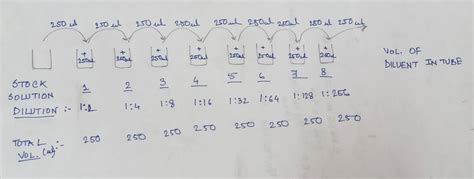 250 ul 250 ul 250 ul 250 ul 250 ul 250 ul 250 ul 250 ul 250 ul
+ 250ul + 250ul + 250ul + 250ul + 250ul + 250ul + 250ul + 250ul
VOL. OF DILUENT IN TUBE
STOCK SOLUTION 1 2 3 4 5 6 7 8
DILUTION :- 1:2 1:4 1:8 1:16 1:32 1:64 1:128 1:256
TOTAL VOL. (ul):- 250 250 250 250 250 250 250 250